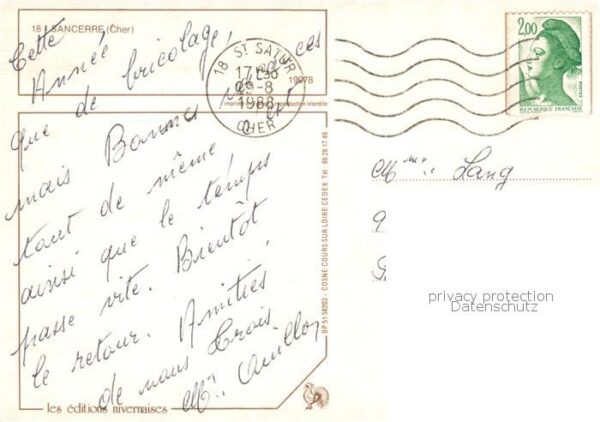 18 - SANCERRE (Cher)
Cette
Année
que de bricolage! ces
mais Bonnes
tout de même
ainsi que le temps
passe vite. Bientôt
le retour. Amitiés
de nous trois.
18 ST SATUR
17H30
29-8
1988
CHER
19978
reproduction interdite
2,00
REPUBLIQUE FRANÇAISE
POSTES
Lang
privacy protection
Datenschutz
BP 51 58203 - COSNE COURS SUR LOIRE CEDEX Tél 86 28 17 49
les éditions nivernaises